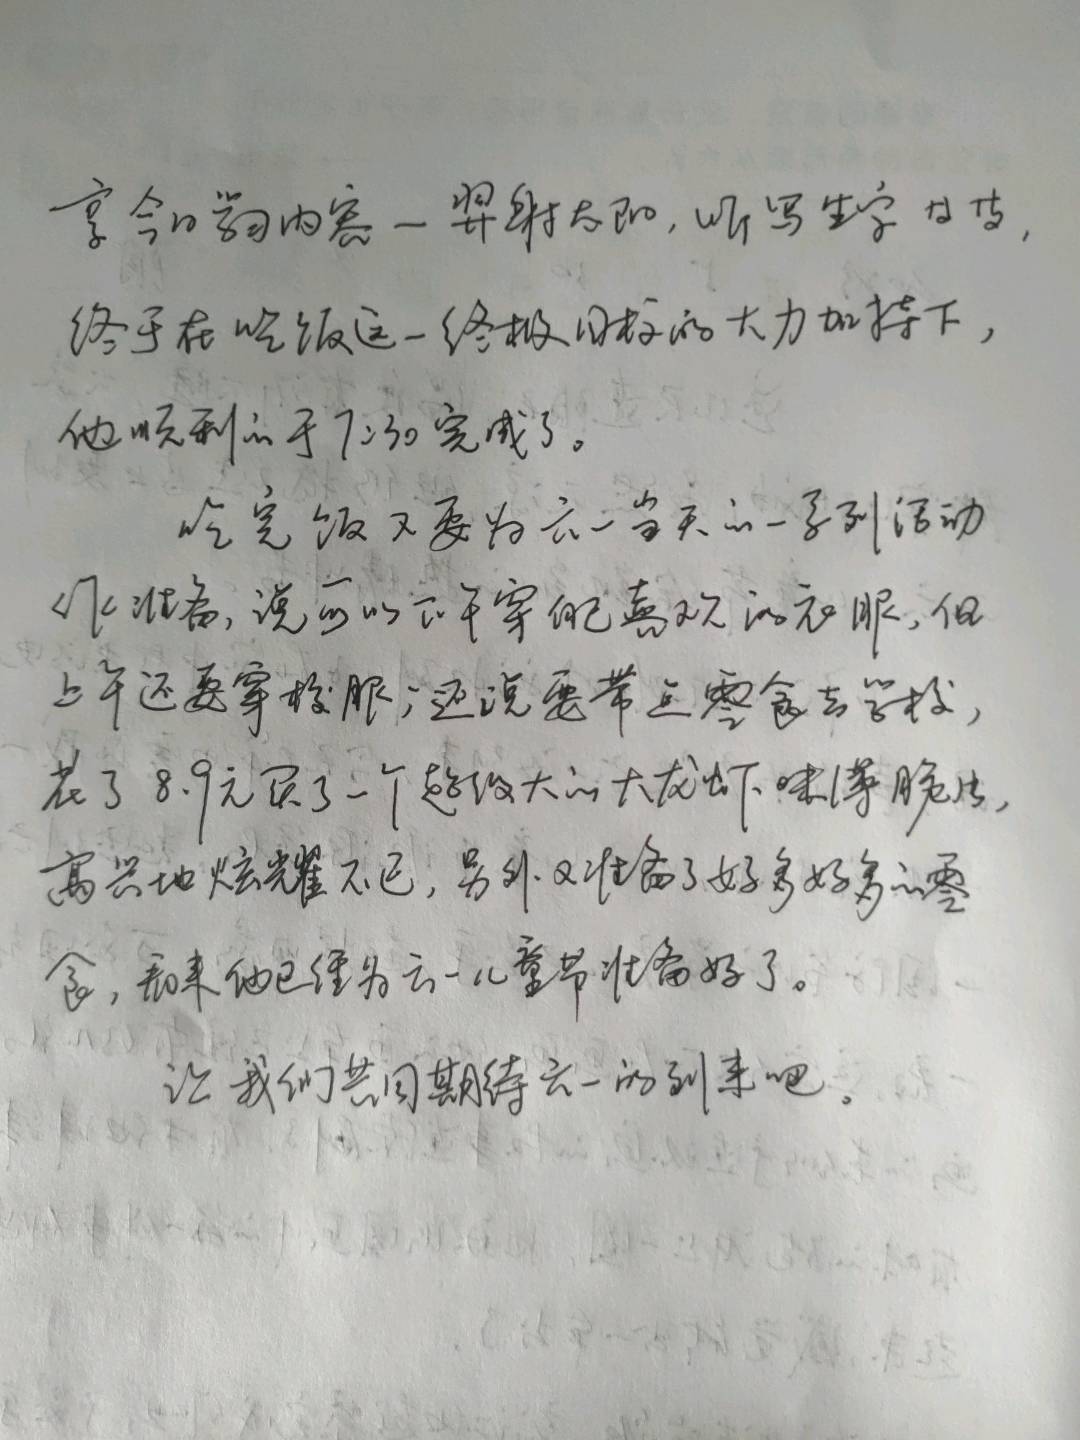 享今日学习内容一羿射太阳，听写生字
终于在吃饭这一终极目标的大力加持下，
他顺利的于7:30完成了。
吃完饭又要为六一当天的一系列活动
做准备，说可以下午穿自己喜欢的衣服，但
上午还要穿校服；还说要带点零食去学校，
花了8.9元买了一个超级大的大龙虾味薄脆片，
高兴地炫耀不已，另外又准备了好多好多的零
食，看来他已经为六一儿童节准备好了。
让我们共同期待六一的到来吧。